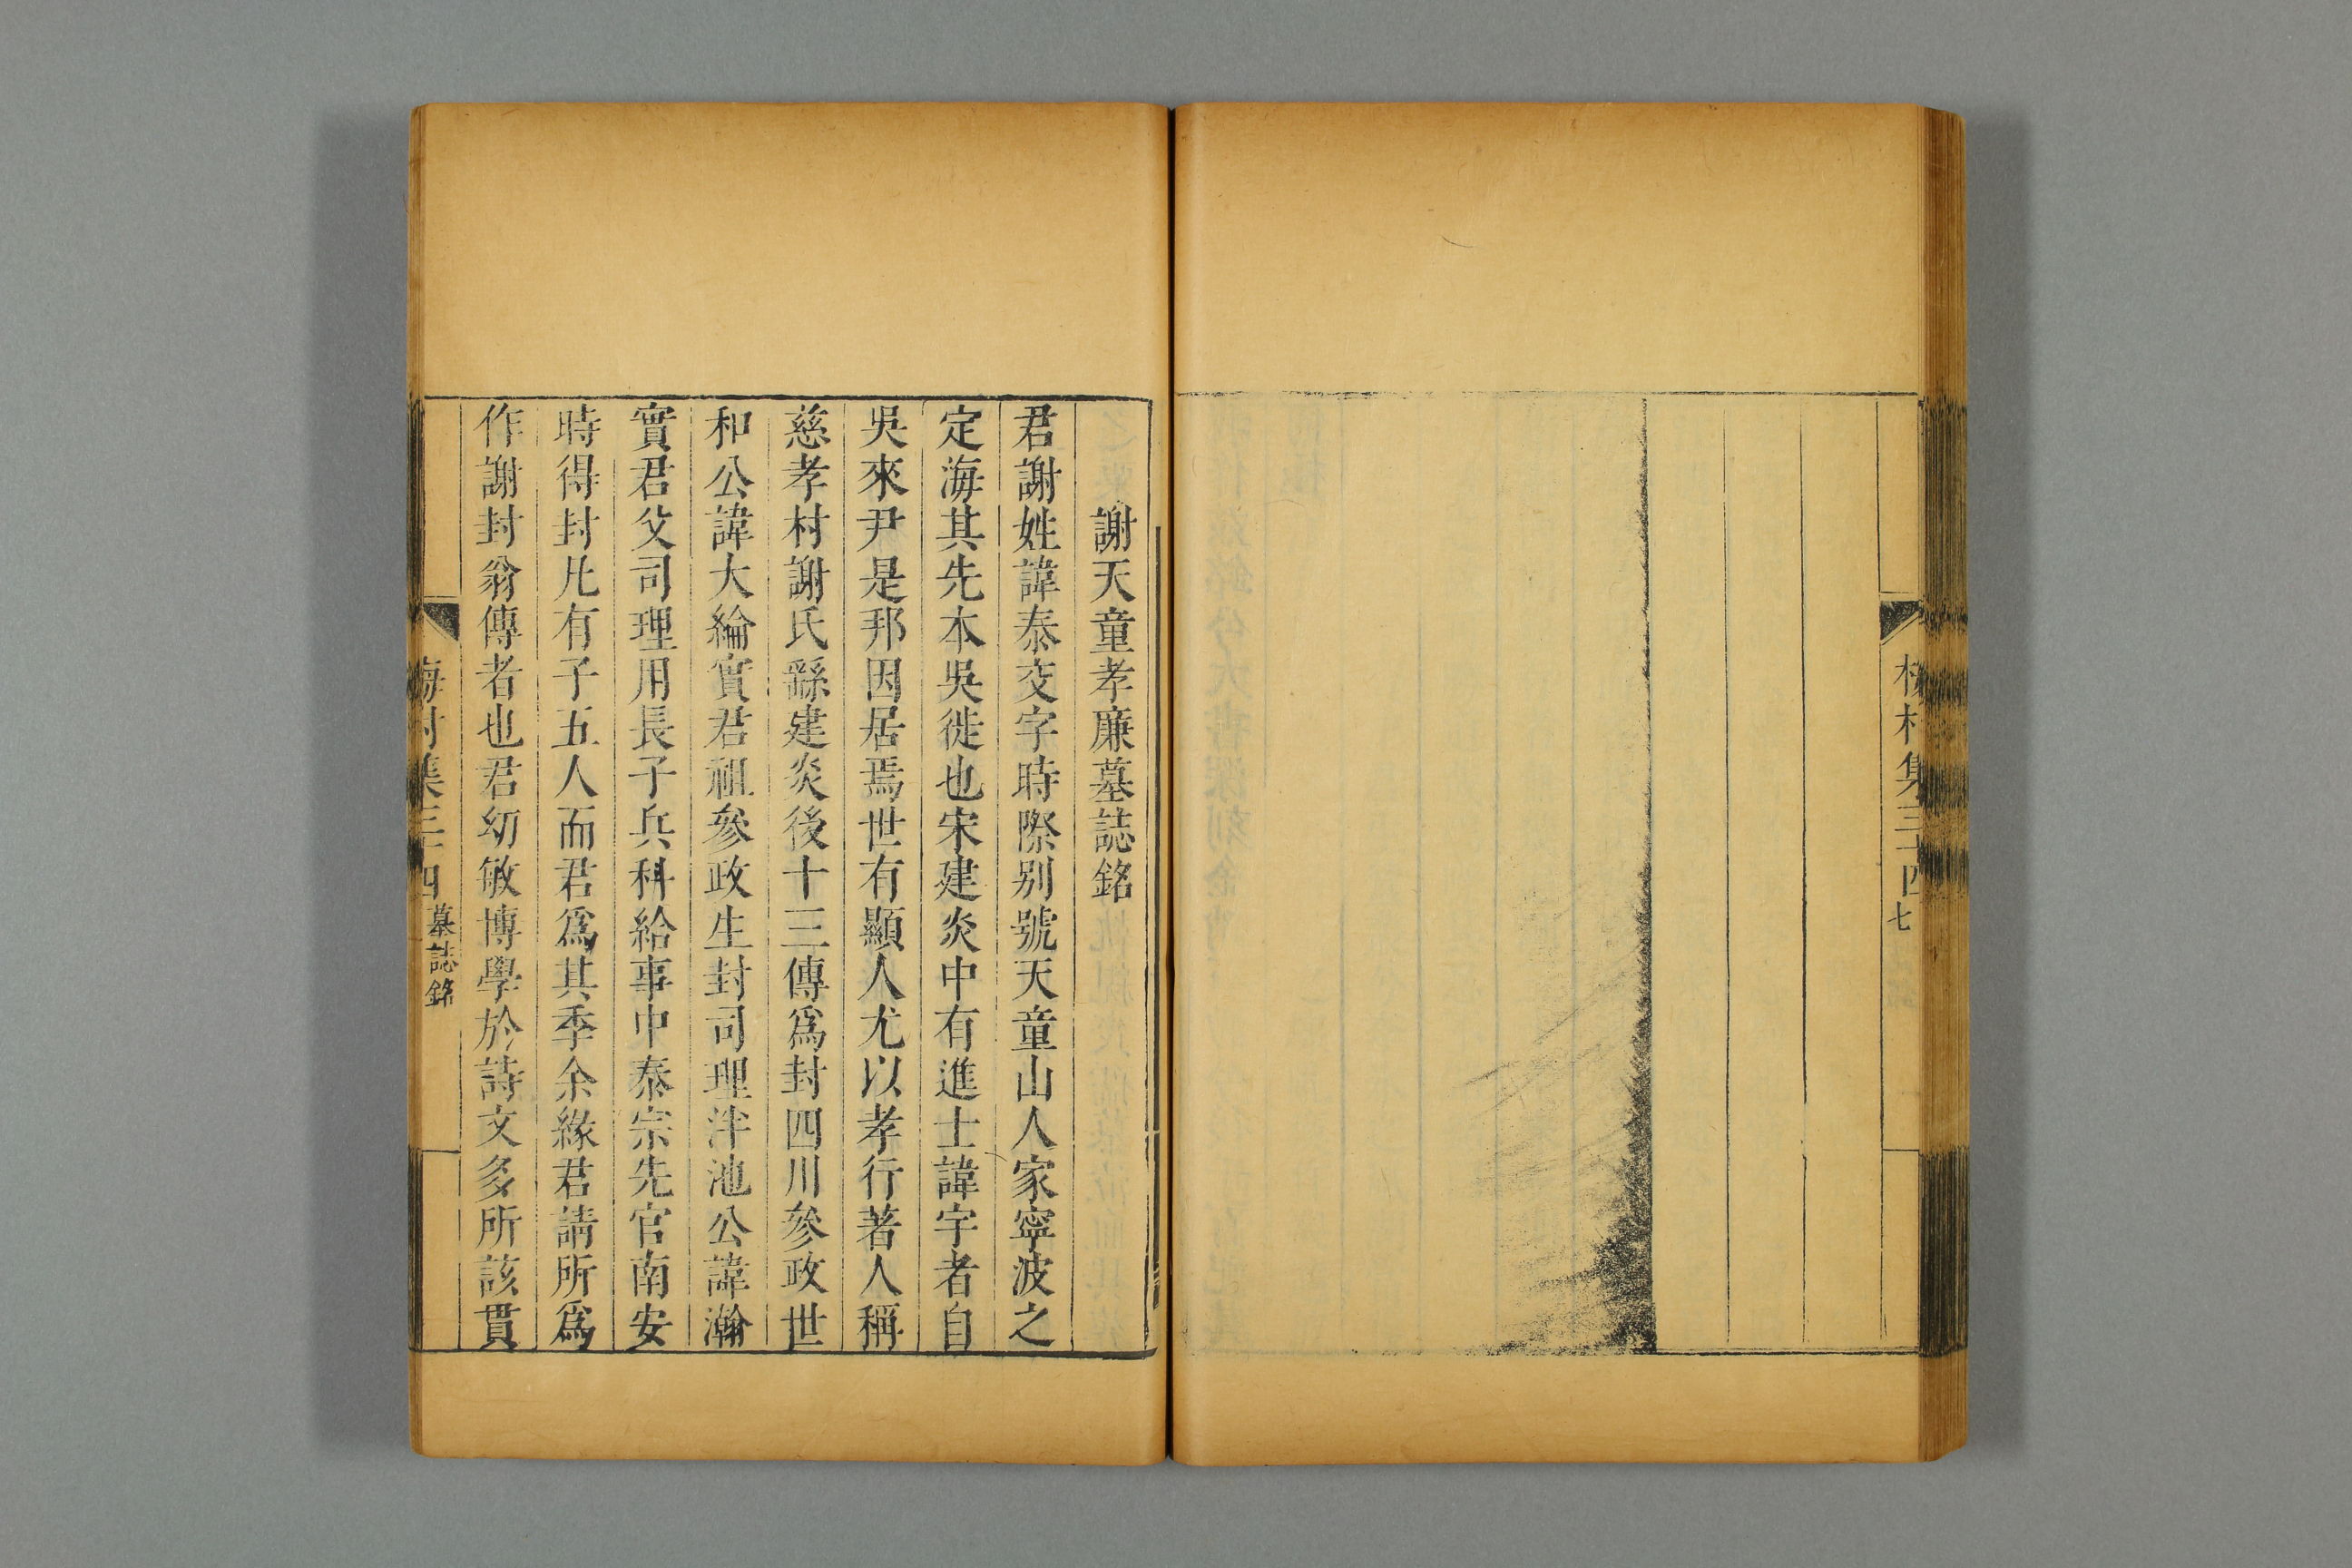 村集三十四
七
謝天童孝廉墓誌銘
君謝姓諱泰交字時際别號天童山人家寧波之
定海其先本吳徙也宋建炎中有進士諱宇者自
吳來尹是邦因居焉世有顯人尤以孝行著人稱
慈孝村謝氏繇建炎後十三傳爲封四川參政世
和公諱大綸實君祖參政生封司理泮池公諱瀚
實君父司理用長子兵科給事中泰宗先官南安
時得封凡有子五人而君爲其季余緣君請所爲
作謝封翁傳者也君幼敏博學於詩文多所該貫
梅村集三十四
墓誌銘